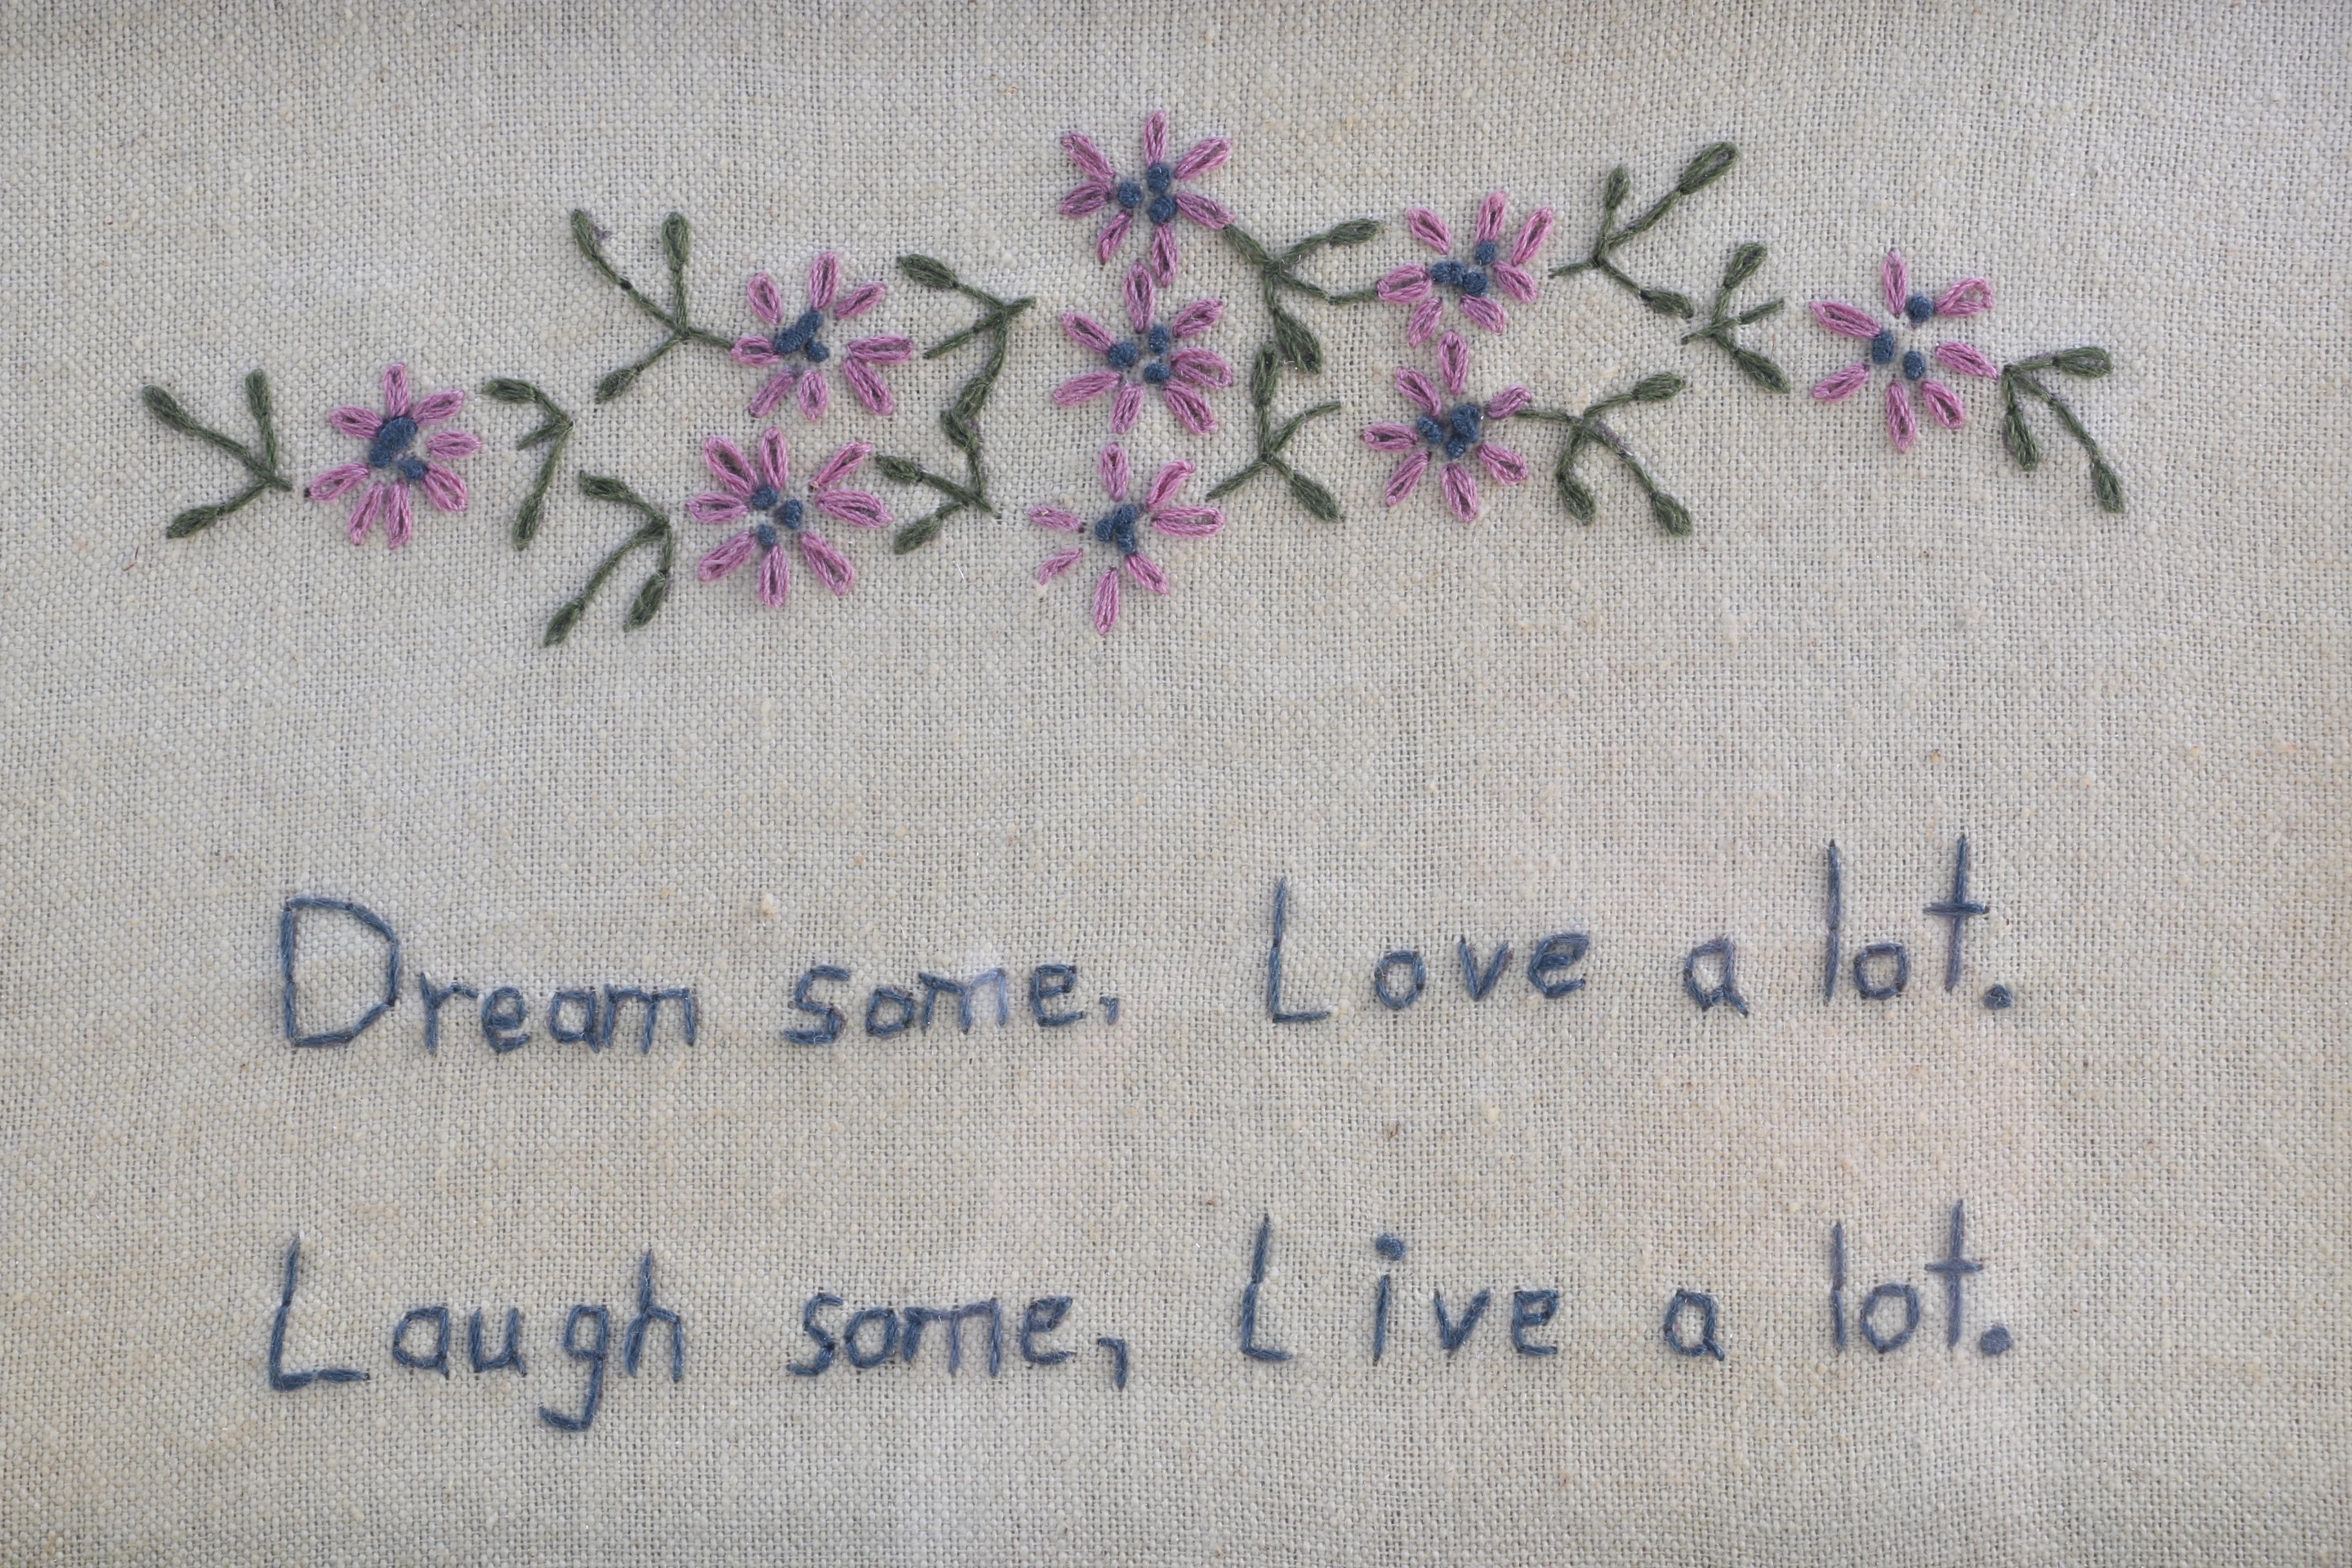 Dream some, Love a lot.
Laugh some, Live a lot.